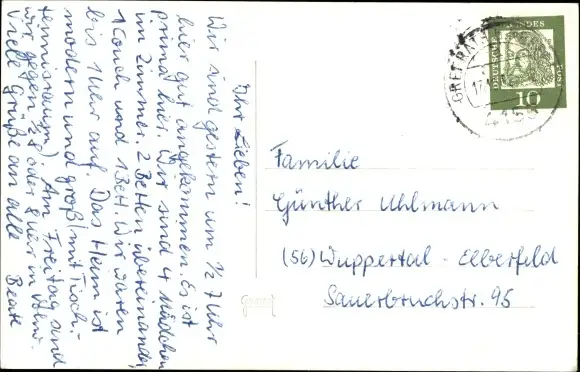 Ihr Lieben!
Wir sind gestern um 1/2 7 Uhr
hier gut angekommen. Es ist
prima hier. Wir sind 4 Mädchen
im Zimmer. 2 Betten übereinander,
1 Couch und 1 Bett. Wir waren
bis 1 Uhr auf. Das Heim ist
modern und groß (mit Tisch-
tennisraum) Am Freitag sind
wir gegen 1/2 8 oder 8 Uhr in
Viele Grüße an alle Beate
Familie
Günther Uhlmann
(56) Wuppertal - Elberfeld
Sauerbruchstr. 95
DEUTSCHE BUNDESPOST
10
GREFRATH